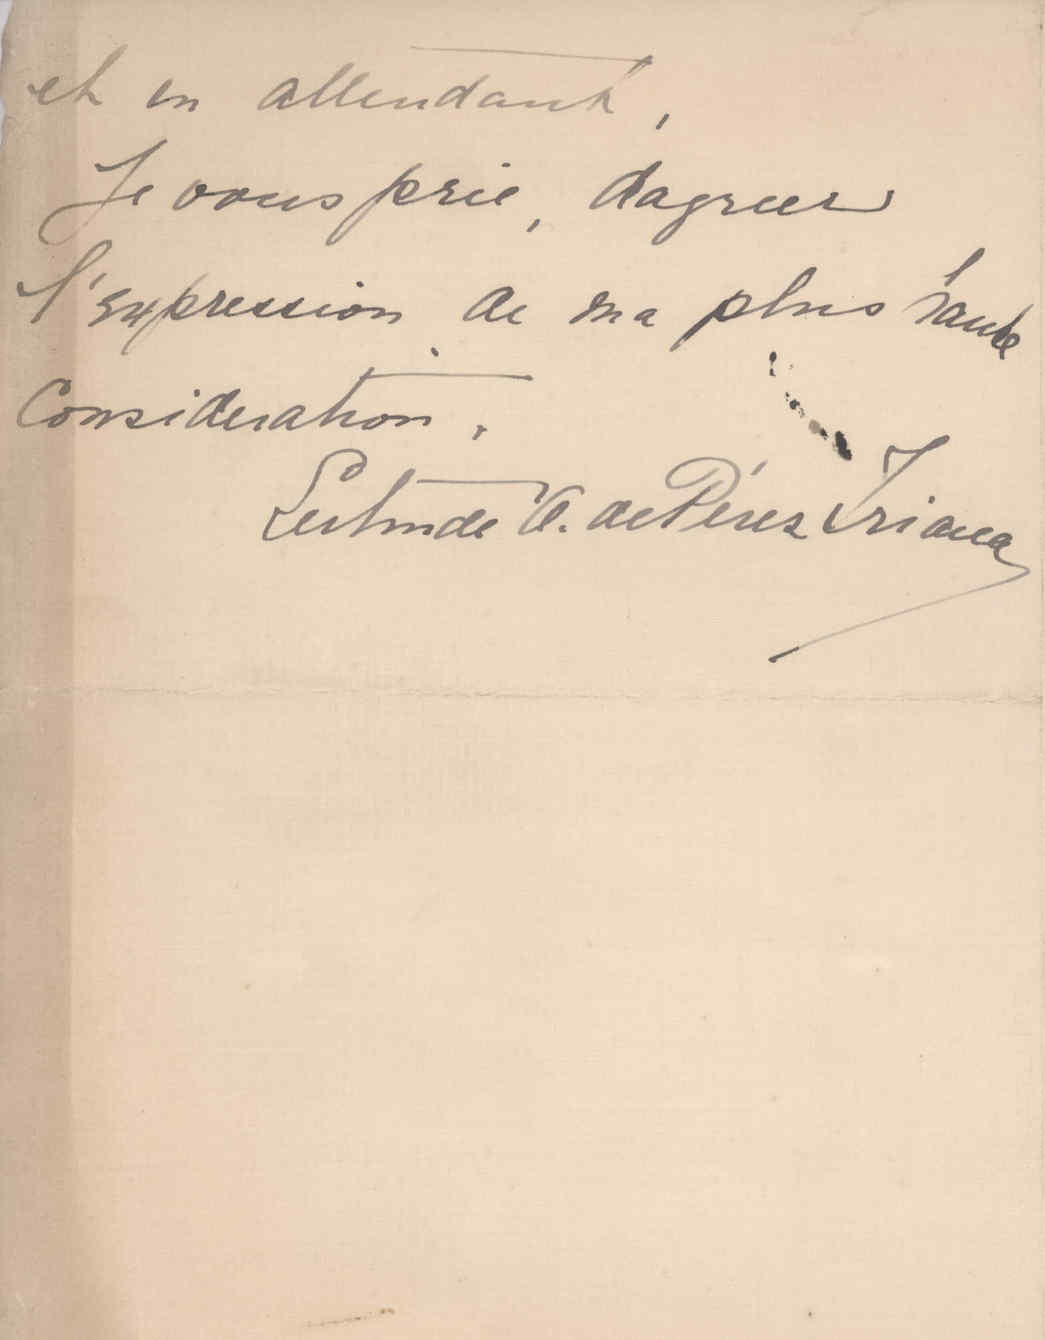 et en attendant,
Je vous prie, d'agreer
l'expression de ma plus haute
Consideration.
Gertrude O. de Pérez Triana